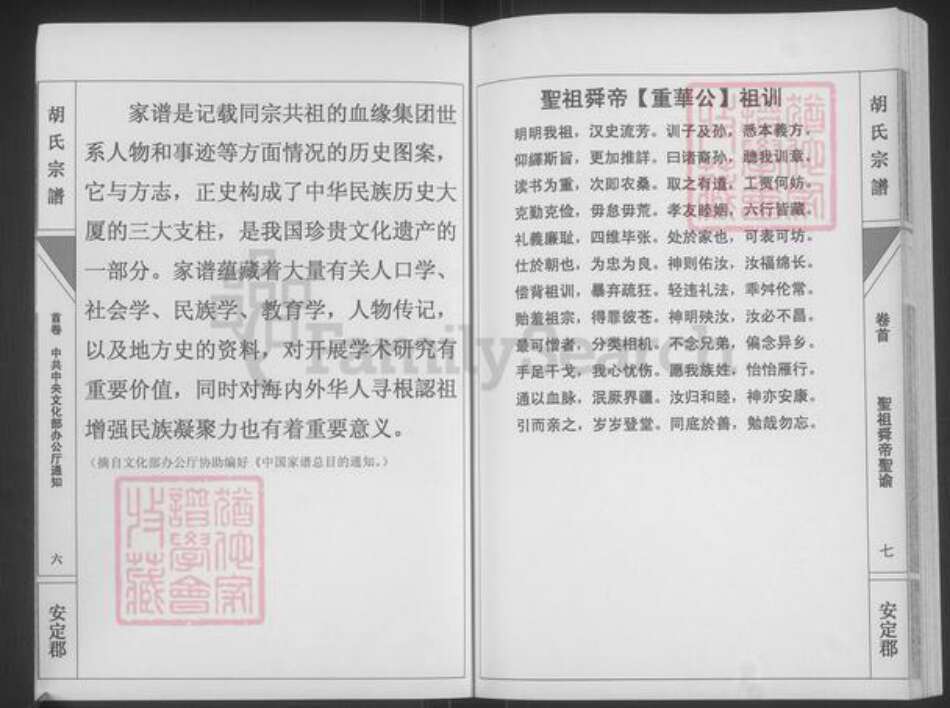 胡氏宗譜
首卷 中共中央文化部办公厅通知
六
安定郡
家谱是记载同宗共祖的血缘集团世
系人物和事迹等方面情况的历史图案，
它与方志，正史构成了中华民族历史大
厦的三大支柱，是我国珍贵文化遗产的
一部分。家谱蕴藏着大量有关人口学、
社会学、民族学、教育学，人物传记，
以及地方史的资料，对开展学术研究有
重要价值，同时对海内外华人寻根認祖
增强民族凝聚力也有着重要意义。
（摘自文化部办公厅协助编好《中国家谱总目的通知。）
譜學會
收藏
FamilySearch
聖祖舜帝【重華公】祖训
明明我祖，汉史流芳。训子及孙，悉本義方。
仰繹斯旨，更加推詳。曰诸裔孙，聽我训章。
读书为重，次即农桑。取之有道，工贾何妨。
克勤克俭，毋怠毋荒。孝友睦姻，六行皆藏。
礼義廉耻，四维毕张。处於家也，可表可坊。
仕於朝也，为忠为良。神则佑汝，汝福绵长。
偿背祖训，暴弃疏狂。轻违礼法，乖舛伦常。
贻羞祖宗，得罪彼苍。神明殃汝，汝必不昌。
最可憎者，分类相机。不念兄弟，偏念异乡。
手足干戈，我心忧伤。愿我族姓，怡怡雁行。
通以血脉，泯厥界疆。汝归和睦，神亦安康。
引而亲之，岁岁登堂。同底於善，勉哉勿忘。
胡氏宗譜
卷首
聖祖舜帝聖谕
七
安定郡